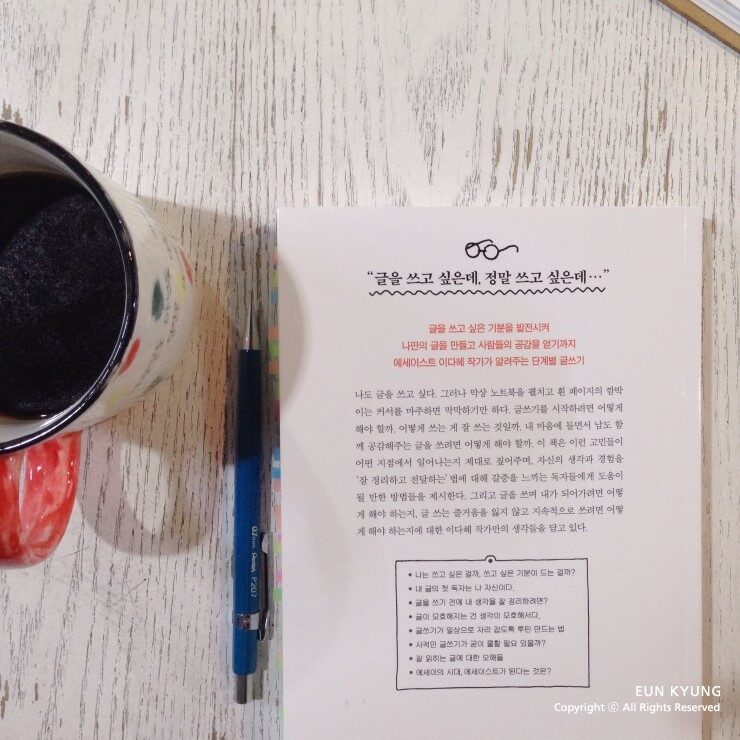 “글을 쓰고 싶은데, 정말 쓰고 싶은데…”
글을 쓰고 싶은 기분을 발전시켜
나만의 글을 만들고 사람들의 공감을 얻기까지
에세이스트 이다혜 작가가 알려주는 단계별 글쓰기
나도 글을 쓰고 싶다. 그러나 막상 노트북을 펼치고 흰 페이지의 깜박
이는 커서를 마주하면 막막하기만 하다. 글쓰기를 시작하려면 어떻게
해야 할까. 어떻게 쓰는 게 잘 쓰는 것일까. 내 마음에 들면서 남도 함
께 공감해주는 글을 쓰려면 어떻게 해야 할까. 이 책은 이런 고민들이
어떤 지점에서 일어나는지 제대로 짚어주며, 자신의 생각과 경험을
‘잘 정리하고 전달하는’ 법에 대해 갈증을 느끼는 독자들에게 도움이
될 만한 방법들을 제시한다. 그리고 글을 쓰며 내가 되어가려면 어떻
게 해야 하는지, 글 쓰는 즐거움을 잃지 않고 지속적으로 쓰려면 어떻
게 해야 하는지에 대한 이다혜 작가만의 생각들을 담고 있다.
• 나는 쓰고 싶은 걸까, 쓰고 싶은 기분이 드는 걸까?
• 내 글의 첫 독자는 나 자신이다.
• 글을 쓰기 전에 내 생각을 잘 정리하려면?
• 글이 모호해지는 건 생각이 모호해서다.
• 글쓰기가 일상으로 자리 잡도록 루틴 만드는 법
• 사적인 글쓰기가 굳이 쿨할 필요 있을까?
• 잘 읽히는 글에 대한 오해들
• 에세이의 시대, 에세이스트가 된다는 것은?
0.7mm Pentel P207
EUN KYUNG
Copyright ⓒ All Rights Reserved